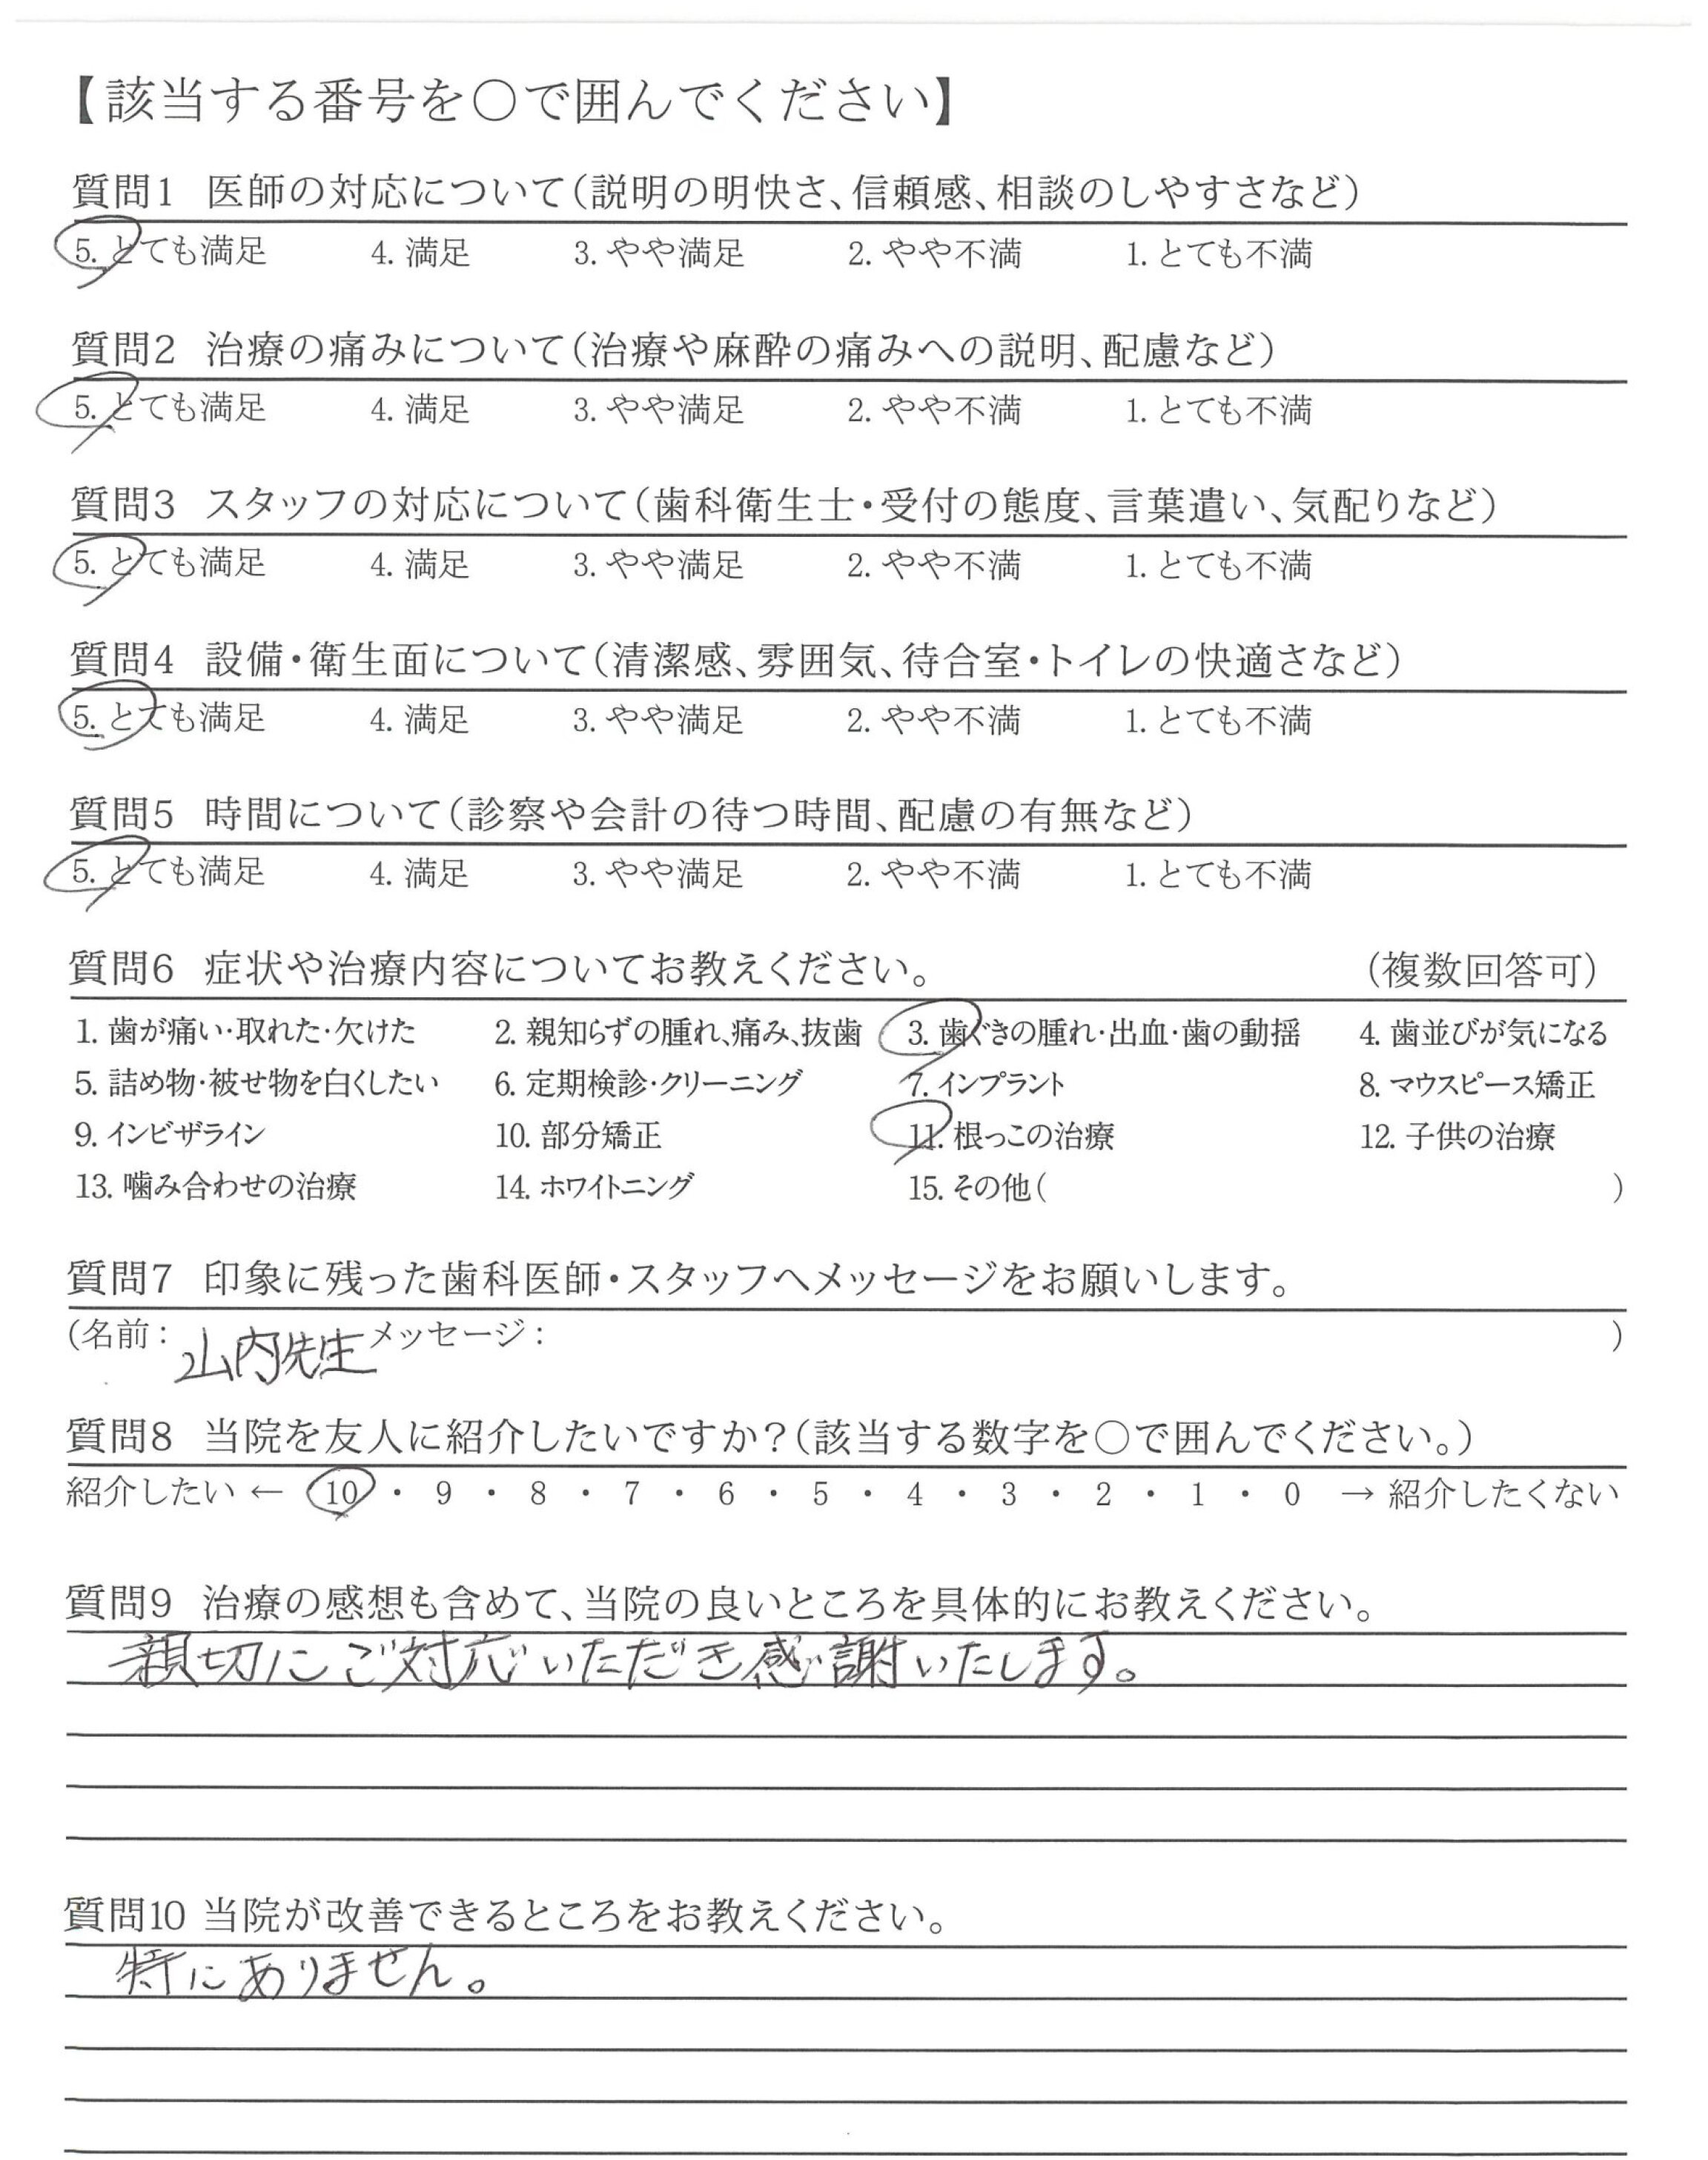 【該当する番号を〇で囲んでください】
質問1 医師の対応について(説明の明快さ、信頼感、相談のしやすさなど)
5. とても満足 4. 満足 3. やや満足 2. やや不満 1. とても不満
質問2 治療の痛みについて(治療や麻酔の痛みへの説明、配慮など)
5. とても満足 4. 満足 3. やや満足 2. やや不満 1. とても不満
質問3 スタッフの対応について(歯科衛生士・受付の態度、言葉遣い、気配りなど)
5. とても満足 4. 満足 3. やや満足 2. やや不満 1. とても不満
質問4 設備・衛生面について(清潔感、雰囲気、待合室・トイレの快適さなど)
5. とても満足 4. 満足 3. やや満足 2. やや不満 1. とても不満
質問5 時間について(診察や会計の待つ時間、配慮の有無など)
5. とても満足 4. 満足 3. やや満足 2. やや不満 1. とても不満
質問6 症状や治療内容についてお教えください。 (複数回答可)
1. 歯が痛い・取れた・欠けた 2. 親知らずの腫れ、痛み、抜歯 3. 歯ぐきの腫れ・出血・歯の動揺 4. 歯並びが気になる
5. 詰め物・被せ物を白くしたい 6. 定期検診・クリーニング 7. インプラント 8. マウスピース矯正
9. インビザライン 10. 部分矯正 11. 根っこの治療 12. 子供の治療
13. 噛み合わせの治療 14. ホワイトニング 15. その他( )
質問7 印象に残った歯科医師・スタッフへメッセージをお願いします。
(名前: 山内先生 メッセージ: )
質問8 当院を友人に紹介したいですか?(該当する数字を〇で囲んでください。)
紹介したい ← 10 ・ 9 ・ 8 ・ 7 ・ 6 ・ 5 ・ 4 ・ 3 ・ 2 ・ 1 ・ 0 → 紹介したくない
質問9 治療の感想も含めて、当院の良いところを具体的にお教えください。
親切にご対応いただき感謝いたします。
質問10 当院が改善できるところをお教えください。
特にありません。